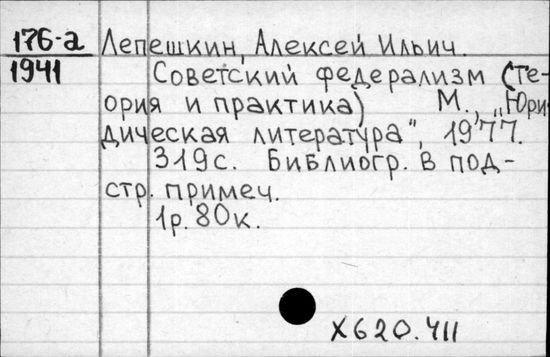 176-а Лепешкин, Алексей Ильич.
1941
Советский федерализм (Те-
ория и практика) М., „Юри-
дическая литература", 1977.
319с. Библиогр. в под-
стр. примеч.
1р. 80к.
X620.411